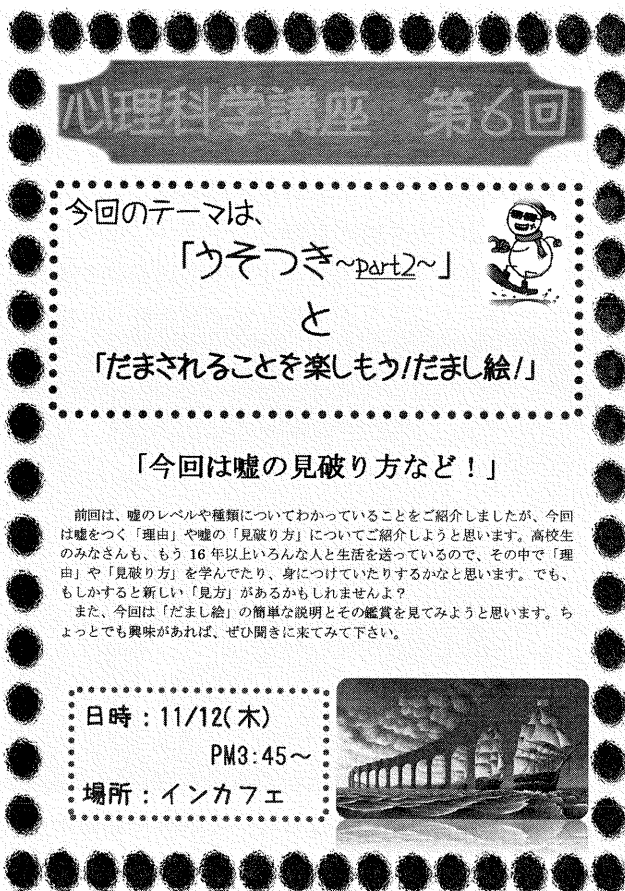 心理科学講座　第6回
今回のテーマは、
「うそつき～part2～」
と
「だまされることを楽しもう!だまし絵!」
「今回は嘘の見破り方など！」
　前回は、嘘のレベルや種類についてわかっていることをご紹介しましたが、今回
は嘘をつく「理由」や嘘の「見破り方」についてご紹介しようと思います。高校生
のみなさんも、もう 16 年以上いろんな人と生活を送っているので、その中で「理
由」や「見破り方」を学んでたり、身につけていたりするかなと思います。でも、
もしかすると新しい「見方」があるかもしれませんよ？
　また、今回は「だまし絵」の簡単な説明とその鑑賞を見てみようと思います。ち
ょっとでも興味があれば、ぜひ聞きに来てみて下さい。
日時：11/12(木)
PM3:45～
場所：インカフェ